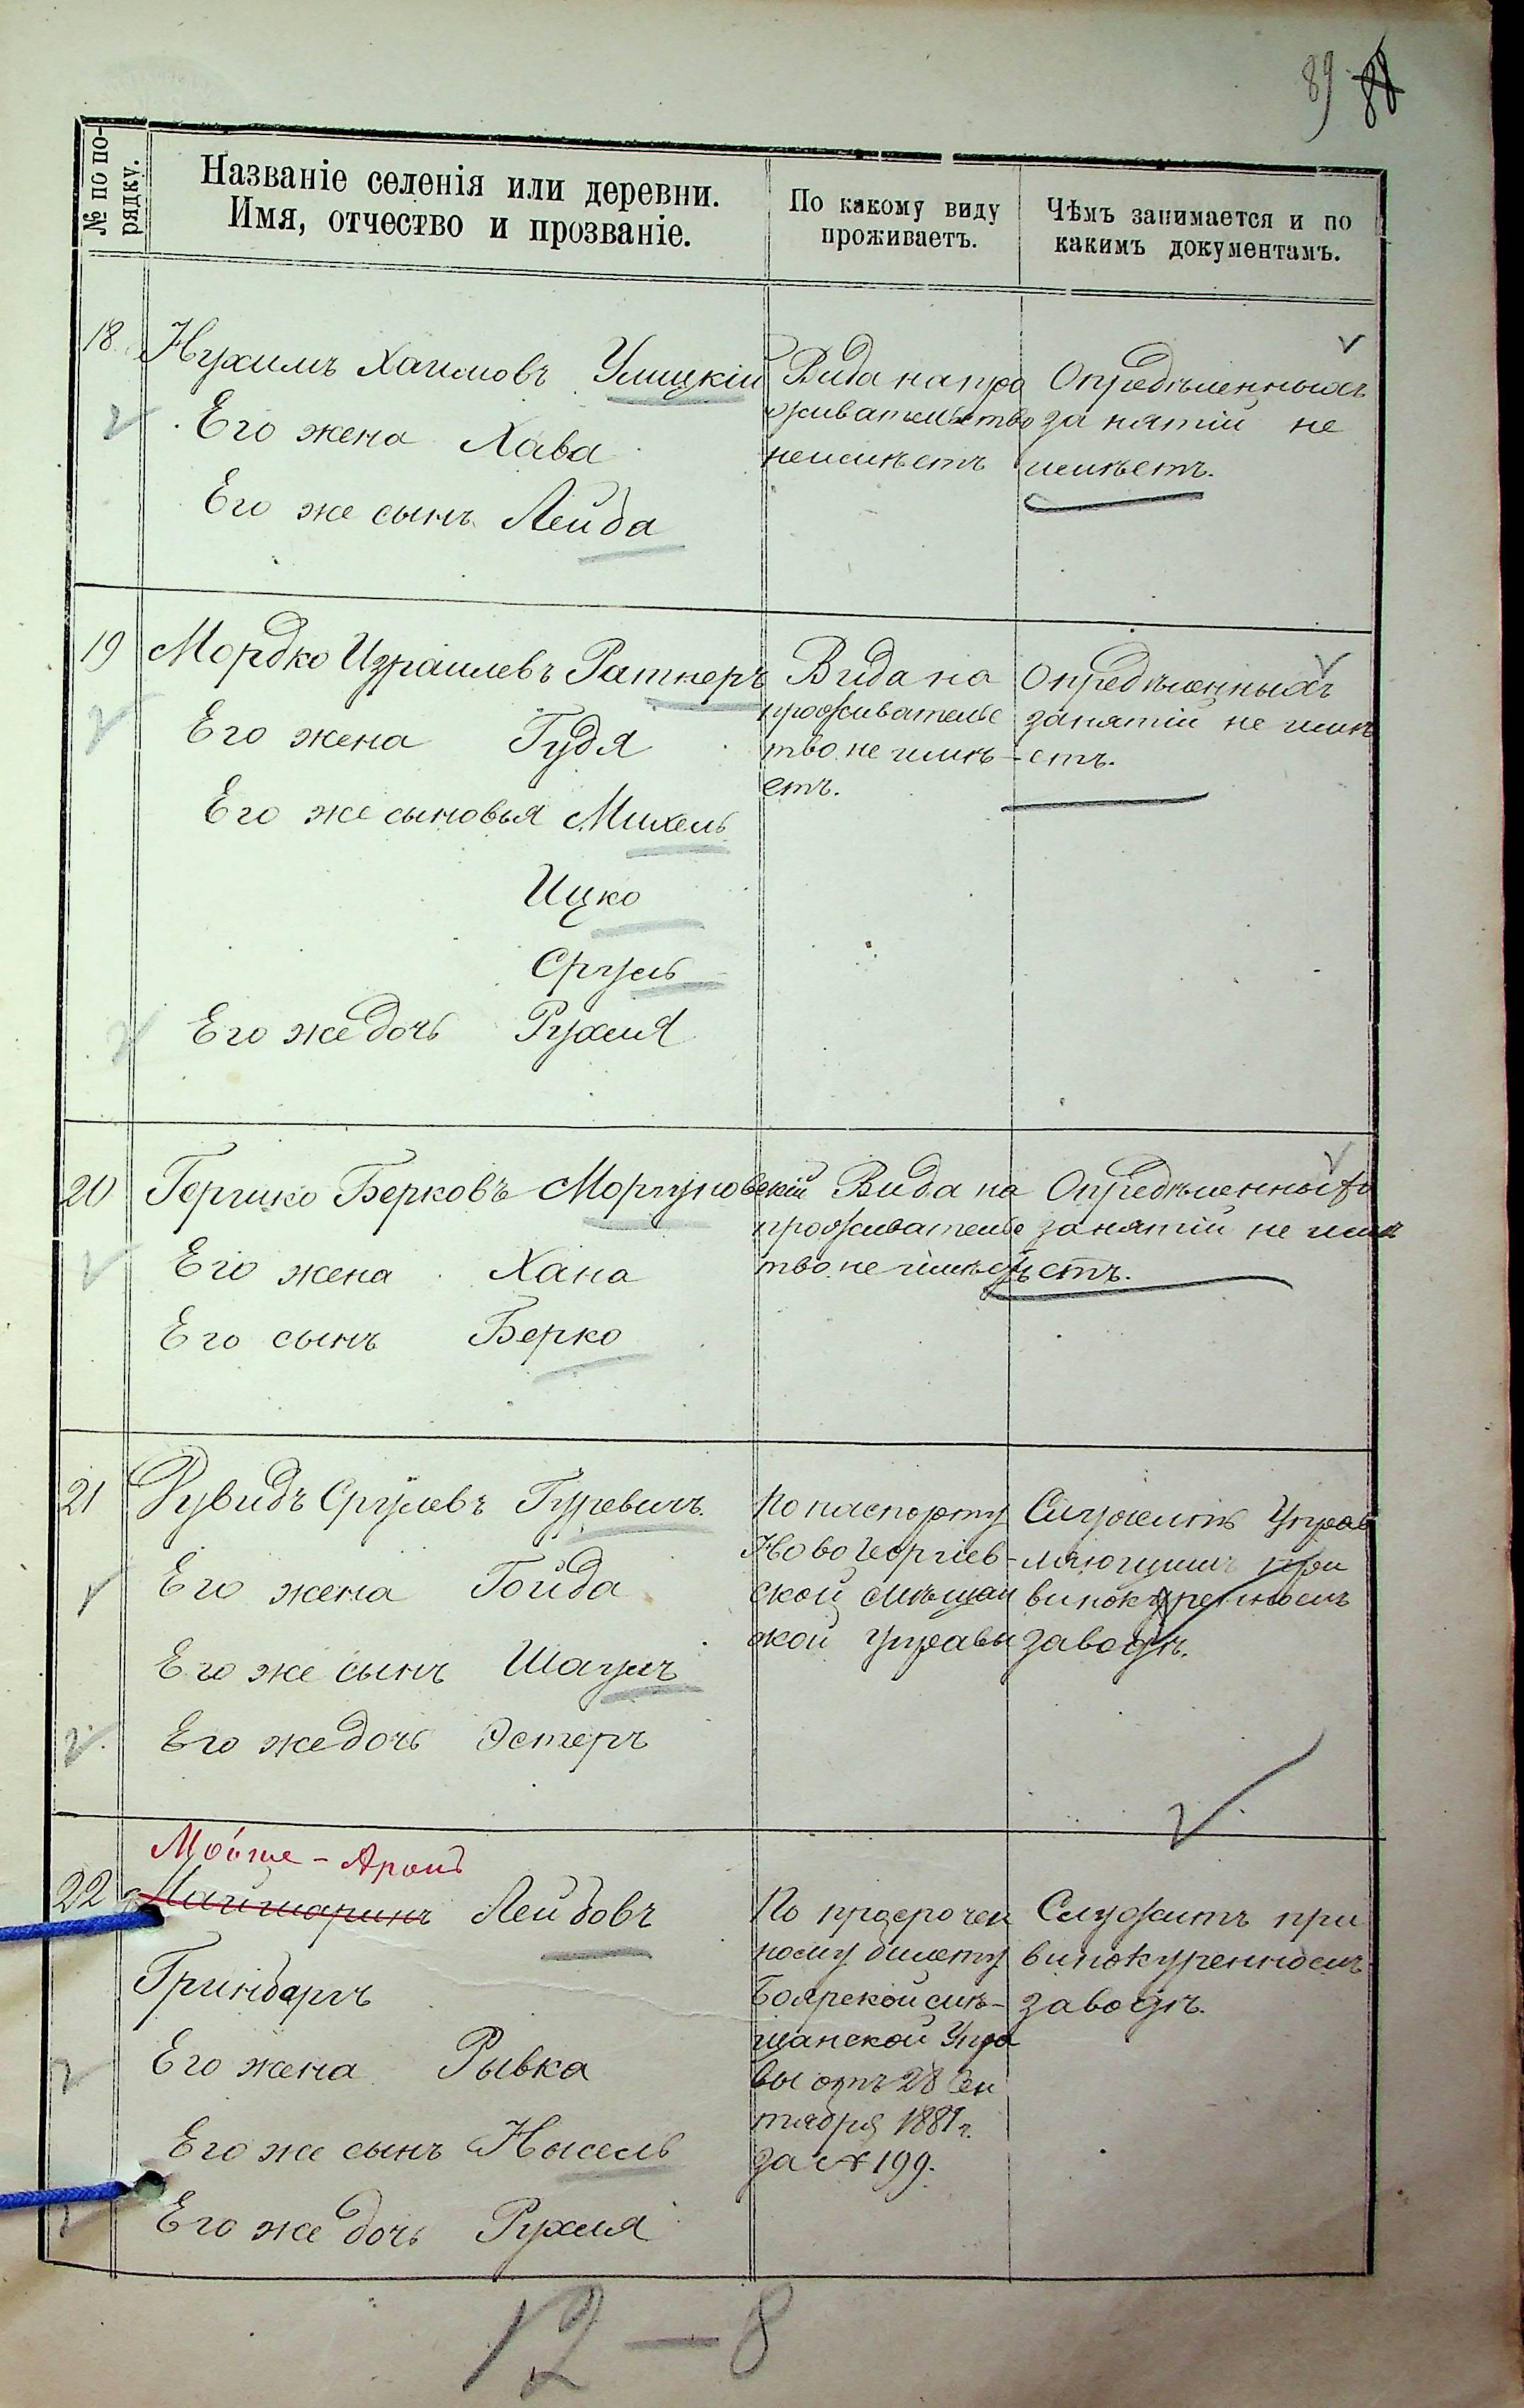 89 88
№ по по-
рядку.
Названіе селенія или деревни.
Имя, отчество и прозваніе.
По какому виду
проживаетъ.
Чѣмъ занимается и по
какимъ документамъ.
18
Нухимъ Хаимовъ Улицкій
Его жена Хава
Его же сынъ Лейба
Вида на про
живательство
неимѣетъ
Опредѣленныхъ
занятій не
имѣетъ.
19
Мордко Израилевъ Ратнеръ
Его жена Гудя
Его же сыновья Михель
Ицко
Сруль
Его же дочь Рухля
Вида на
проживательс
тво не имѣ-
етъ.
Опредѣленныхъ
занятій не имѣ
етъ.
20
Гершко Берковъ Моргуновскій
Его жена Хана
Его сынъ Берко
Вида на
проживательс
тво не имѣ
Опредѣленныхъ
занятій не имѣ
етъ.
21
Рувидъ Срулевъ Гуревичъ.
Его жена Гойда
Его же сынъ Шауль
Его же дочь Эстеръ
По паспорту
Новогеоргіев-
ской мѣщан
ской управы
Служитъ Управ
ляющимъ при
винокуренномъ
заводѣ.
Мойше - Аронъ
22
Маймаринъ Лейбовъ
Гринбаргъ
Его жена Рывка
Его же сынъ Нысель
Его же дочь Рухля
По просрочен
ному билету
Боярской мѣ-
щанской Упра
вы отъ 28 Сен
тября 1881 г.
за № 199.
Служитъ при
винокуренномъ
заводѣ.
12 - 8